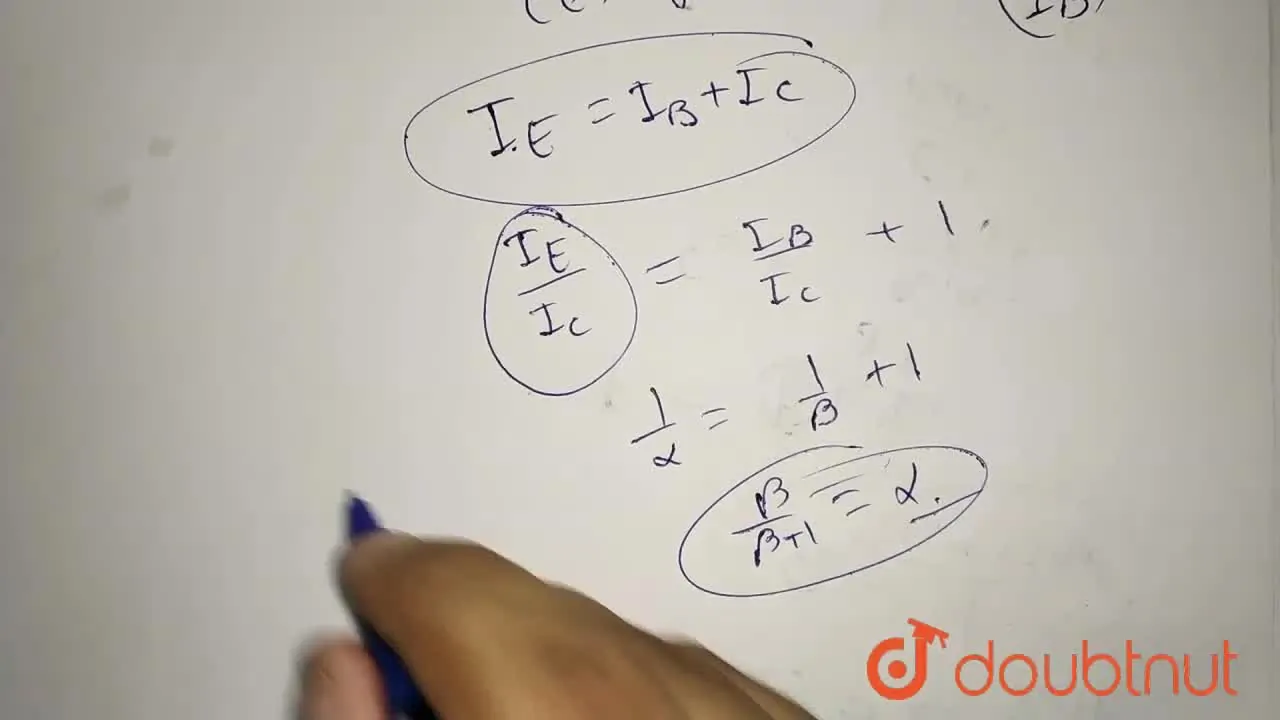 I_B)
I_E = I_B + I_C
I_E/I_C = I_B/I_C + 1.
1/α = 1/β + 1
β/β+1 = α.
doubtnut